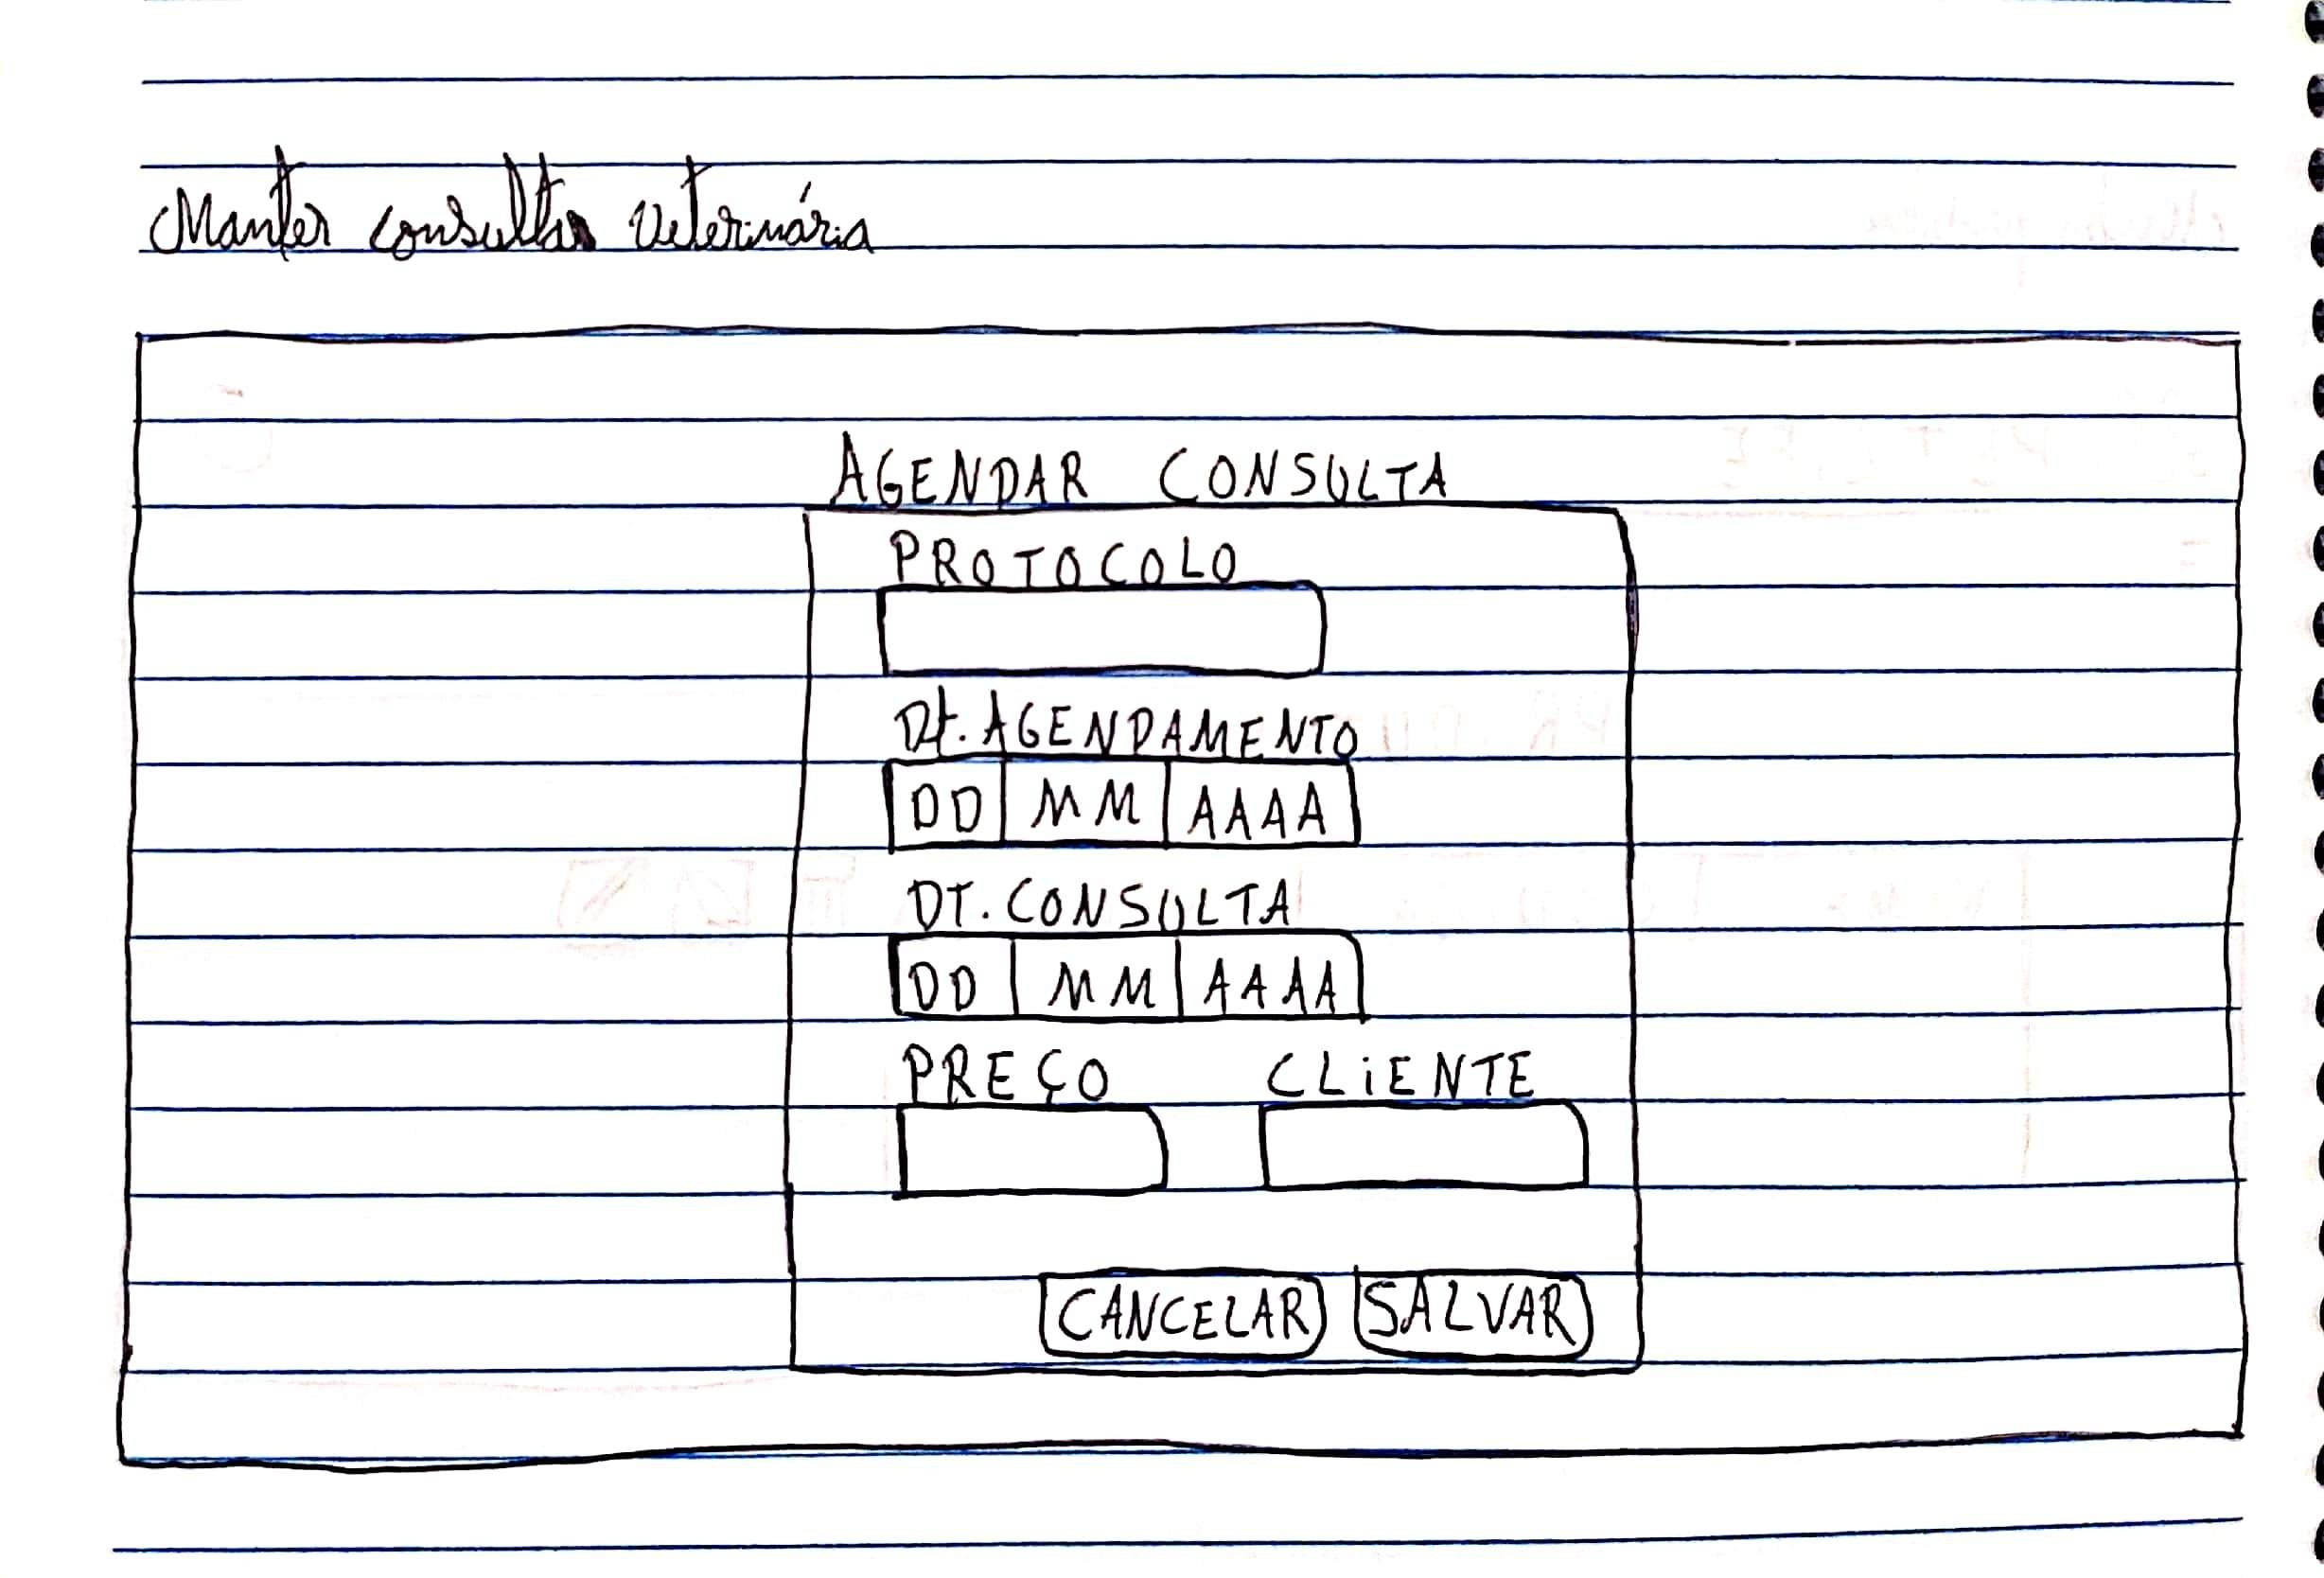 Manter consulta veterinária
AGENDAR CONSULTA
PROTOCOLO
Dt. AGENDAMENTO
DD MM AAAA
DT. CONSULTA
DD MM AAAA
PREÇO CLIENTE
CANCELAR SALVAR